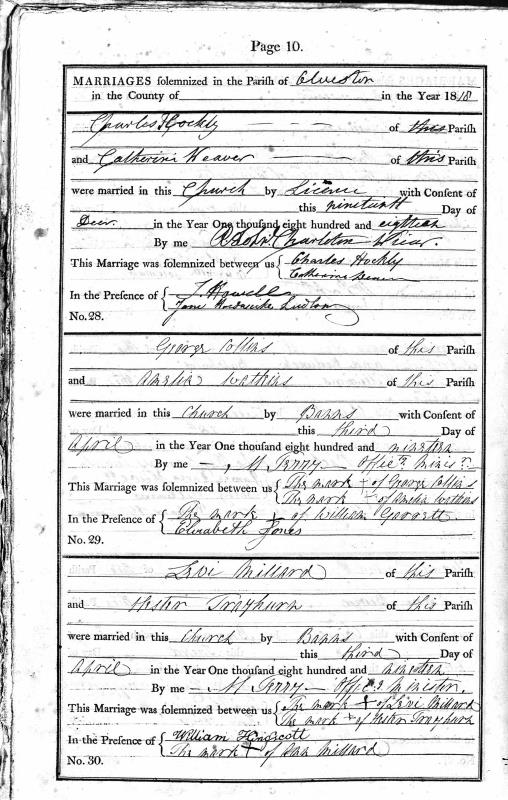 Page 10.
MARRIAGES solemnized in the Parish of Olveston
in the County of in the Year 1818
Charles Hockly of this Parish
and Catherine Weaver of this Parish
were married in this Church by Licence with Consent of
this nineteenth Day of
Decr. in the Year One thousand eight hundred and eighteen
By me Robt. Charleton Vicar.
This Marriage was solemnized between us { Charles Hockly
Catherine Weaver
In the Presence of { J. Howell
Jane Ludlow
No. 28.
George Collins of this Parish
and Amelia Watkins of this Parish
were married in this Church by Banns with Consent of
this third Day of
April in the Year One thousand eight hundred and nineteen
By me — M Terry — Officg. Minisr.
This Marriage was solemnized between us { The mark + of George Collins
The mark + of Amelia Watkins
In the Presence of { The mark + of William Garrett.
Elizabeth Jones
No. 29.
Levi Millard of this Parish
and Hester Trayhurn of this Parish
were married in this Church by Banns with Consent of
this third Day of
April in the Year One thousand eight hundred and nineteen
By me — M Terry — Officg. Minister.
This Marriage was solemnized between us { The mark + of Levi Millard
The mark + of Hester Trayhurn
In the Presence of { William Hindscott
The mark + of Ann Millard
No. 30.